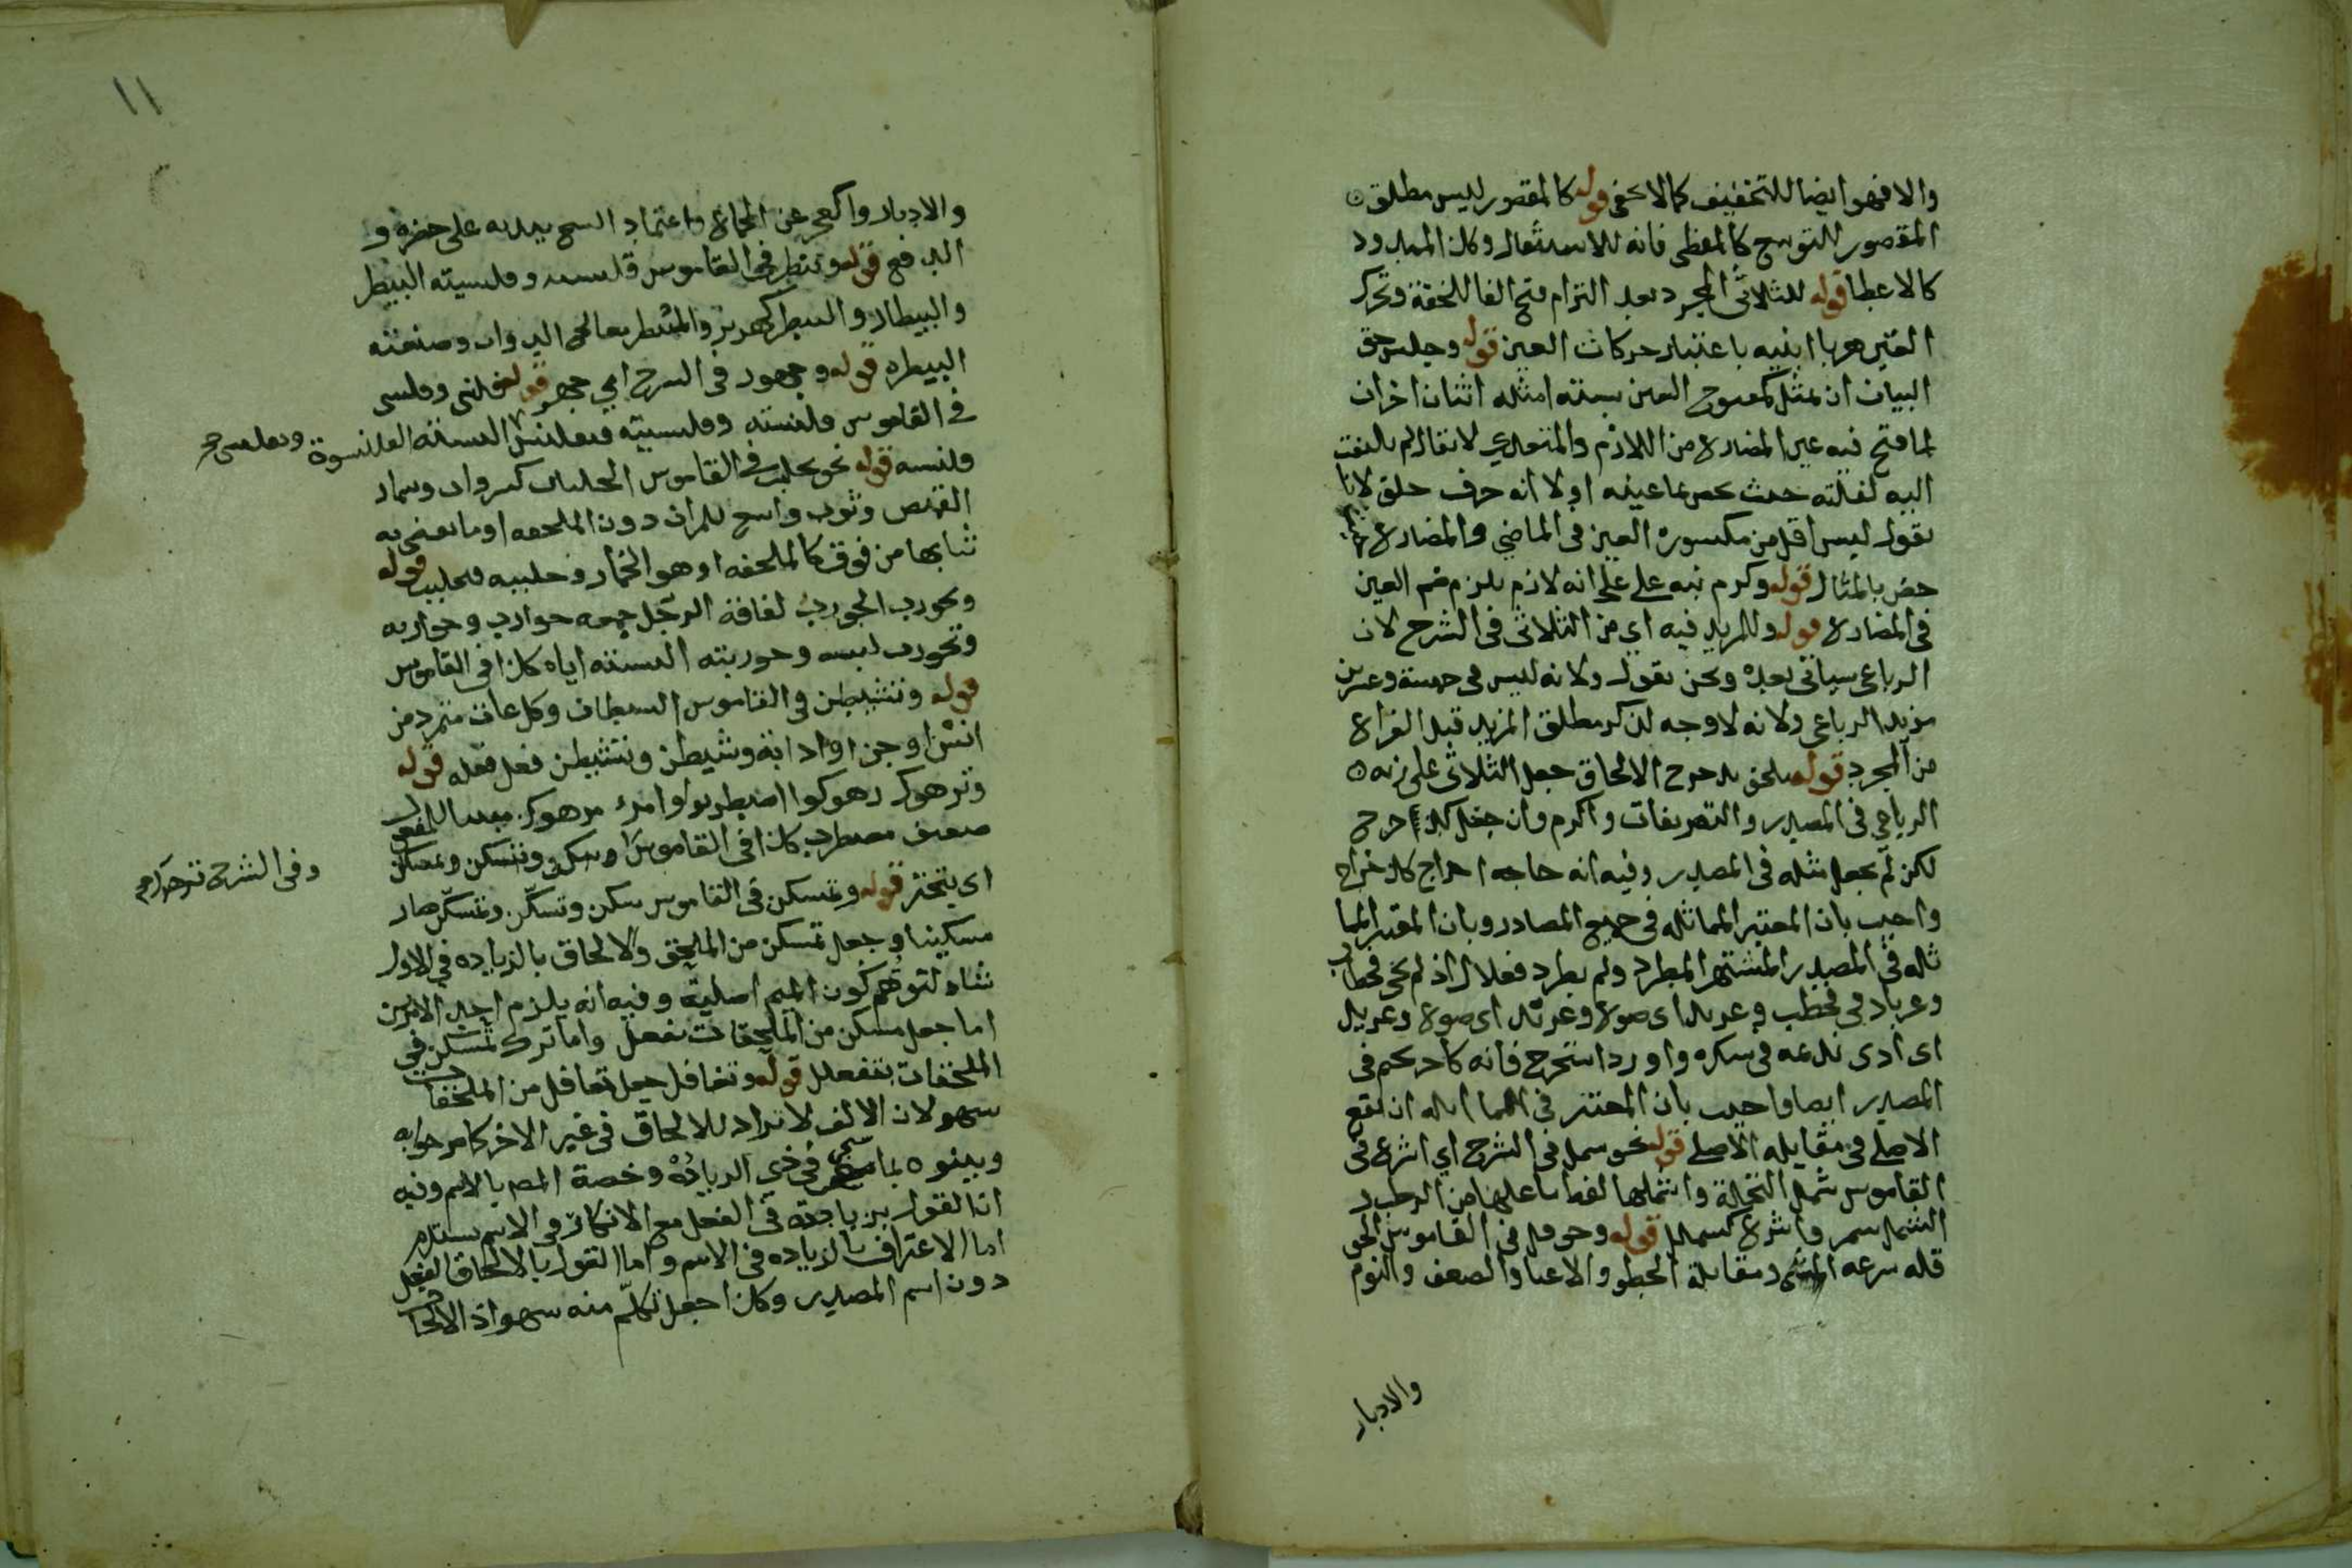 والا فهو ايضا للتخفيف كما لا يخفى قوله كالمقصور ليس مطلق
المقصور للتوسع كالمعطى فانه للاستثقال وكذا الممدود
كالاعطا قوله للثلاثي المجرد بعد التزام فتح الفا للخفة وتحرك
العين ابنيه باعتبار حركات العين قوله وجلس حق
البيان ان يمثل لمفتوح العين بستة امثله اثنان اخران
لما فتح فيه عين المضارع من اللازم والمتعدي لا يقال لم يلتفت
اليه لقلته حيث خص بما عينه او لا انه حرف حلق لانا
نقول ليس اقل من مكسورة العين في الماضي والمضارع
خص بالمثال قوله وكرم نبه على انه لازم يلزم ضم العين
في المضارع قوله وللمزيد فيه اي من الثلاثي في الشرح لان
الرباعي سياتي بعده ونحن نقول ولانه ليس في خمسة وعشرين
مزيد الرباعي ولانه لا وجه لذكر مطلق المزيد قبل الفراغ
من المجرد قوله ملحق بدحرج الالحاق جعل الثلاثي على زنة
الرباعي في المصدر والتصريفات واكرم وان جعل كدحرج
لكن لم يجعل مثله في المصدر وفيه انه حاجه اخراج كاخراج
واجيب بان المعتبر المماثله في جميع المصادر وبان المعتبر المما
ثله في المصدر المشتهر المطرد ولم يطرد فعلال اذ لم يجئ قحطاب
وعرباد في قحطب وعربد اي صرع وعربد
اى اذى نديمه في سكره واورد استخرج فانه كاحرنجم في
المصدر ايضا واجيب بان المعتبر في المماثله ان يقع
الاصلي في مقابله الاصلي قوله نحو شملل في الشرح اي اسرع في
القاموس شمل النخلة واشملها لقط ما عليها من الرطب و
الشمل شمر واسرع كشملل قوله وحوقل في القاموس الحو
قله سرعه المشي ومقاربة الخطو والاعيا والضعف والنوم
والادبار
١١
والادبار والعجز عن الجماع واعتماد الشيخ بيديه على خصره و
الدفع قوله وبيطر في القاموس البيطر
والبيطار والبيطر كهزبر والمبيطر معالج الدواب وصنعته
البيطره قوله وجهور في الشرح اي جهر قوله قلنس وقلسى
في القاموس قلنسته وقلسيته فتقلنس البسته القلنسوة وتقلسى
قلنسه قوله نحو تجلبب في القاموس الجلباب كسرداب وسمار
القميص وثوب واسع للمراة دون الملحفه او ما تغطى به
ثيابها من فوق كالملحفه او هو الخمار وجلببه فتجلبب قوله
وتجورب الجورب لفافة الرجل جمعه جوارب وجواربه
وتجورب لبسه وجوربته البسته اياه كذا في القاموس
قوله وتشيطن في القاموس الشيطان وكل عات متمرد من
انس او جن او دابة وشيطن وتشيطن فعل فعله قوله
وترهوك رهوكوا اضطربوا وامرء مرهوك مبنيا للمفعول
ضعيف مضطرب كذا في القاموس
وفي الشرح ترهوك
اي يتبختر قوله وتمسكن في القاموس سكن وتسكن وتمسكن صار
مسكينا وجعل تمسكن من الملحق والالحاق بالزياده في الاول
شاذ لتوهم كون الميم اصلية وفيه انه يلزم احد الامرين
اما جعل مسكن من الملحقات بفعلل واما ترك تمسكن في
الملحقات بتفعلل قوله وتغافل جعل تغافل من الملحقات
سهو لان الالف لا تزاد للالحاق في غير الاخر كما مر جوابه
وبينوه بما في ذي الزياده وخصة المصر بالاسم وفيه
ان القول بزيادته في الفعل مع الانكار في الاسم يستلزم
اما الاعتراف بالزياده في الاسم واما القول بالالحاق لفعل
دون اسم المصدر وكذا جعل تكلم منه سهو اذ الالحا